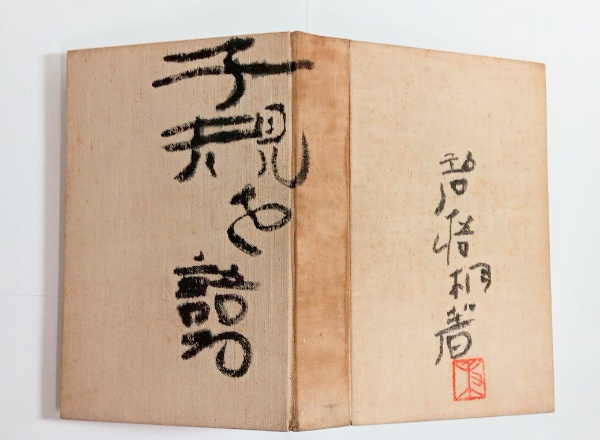 子規を語る
碧梧桐著